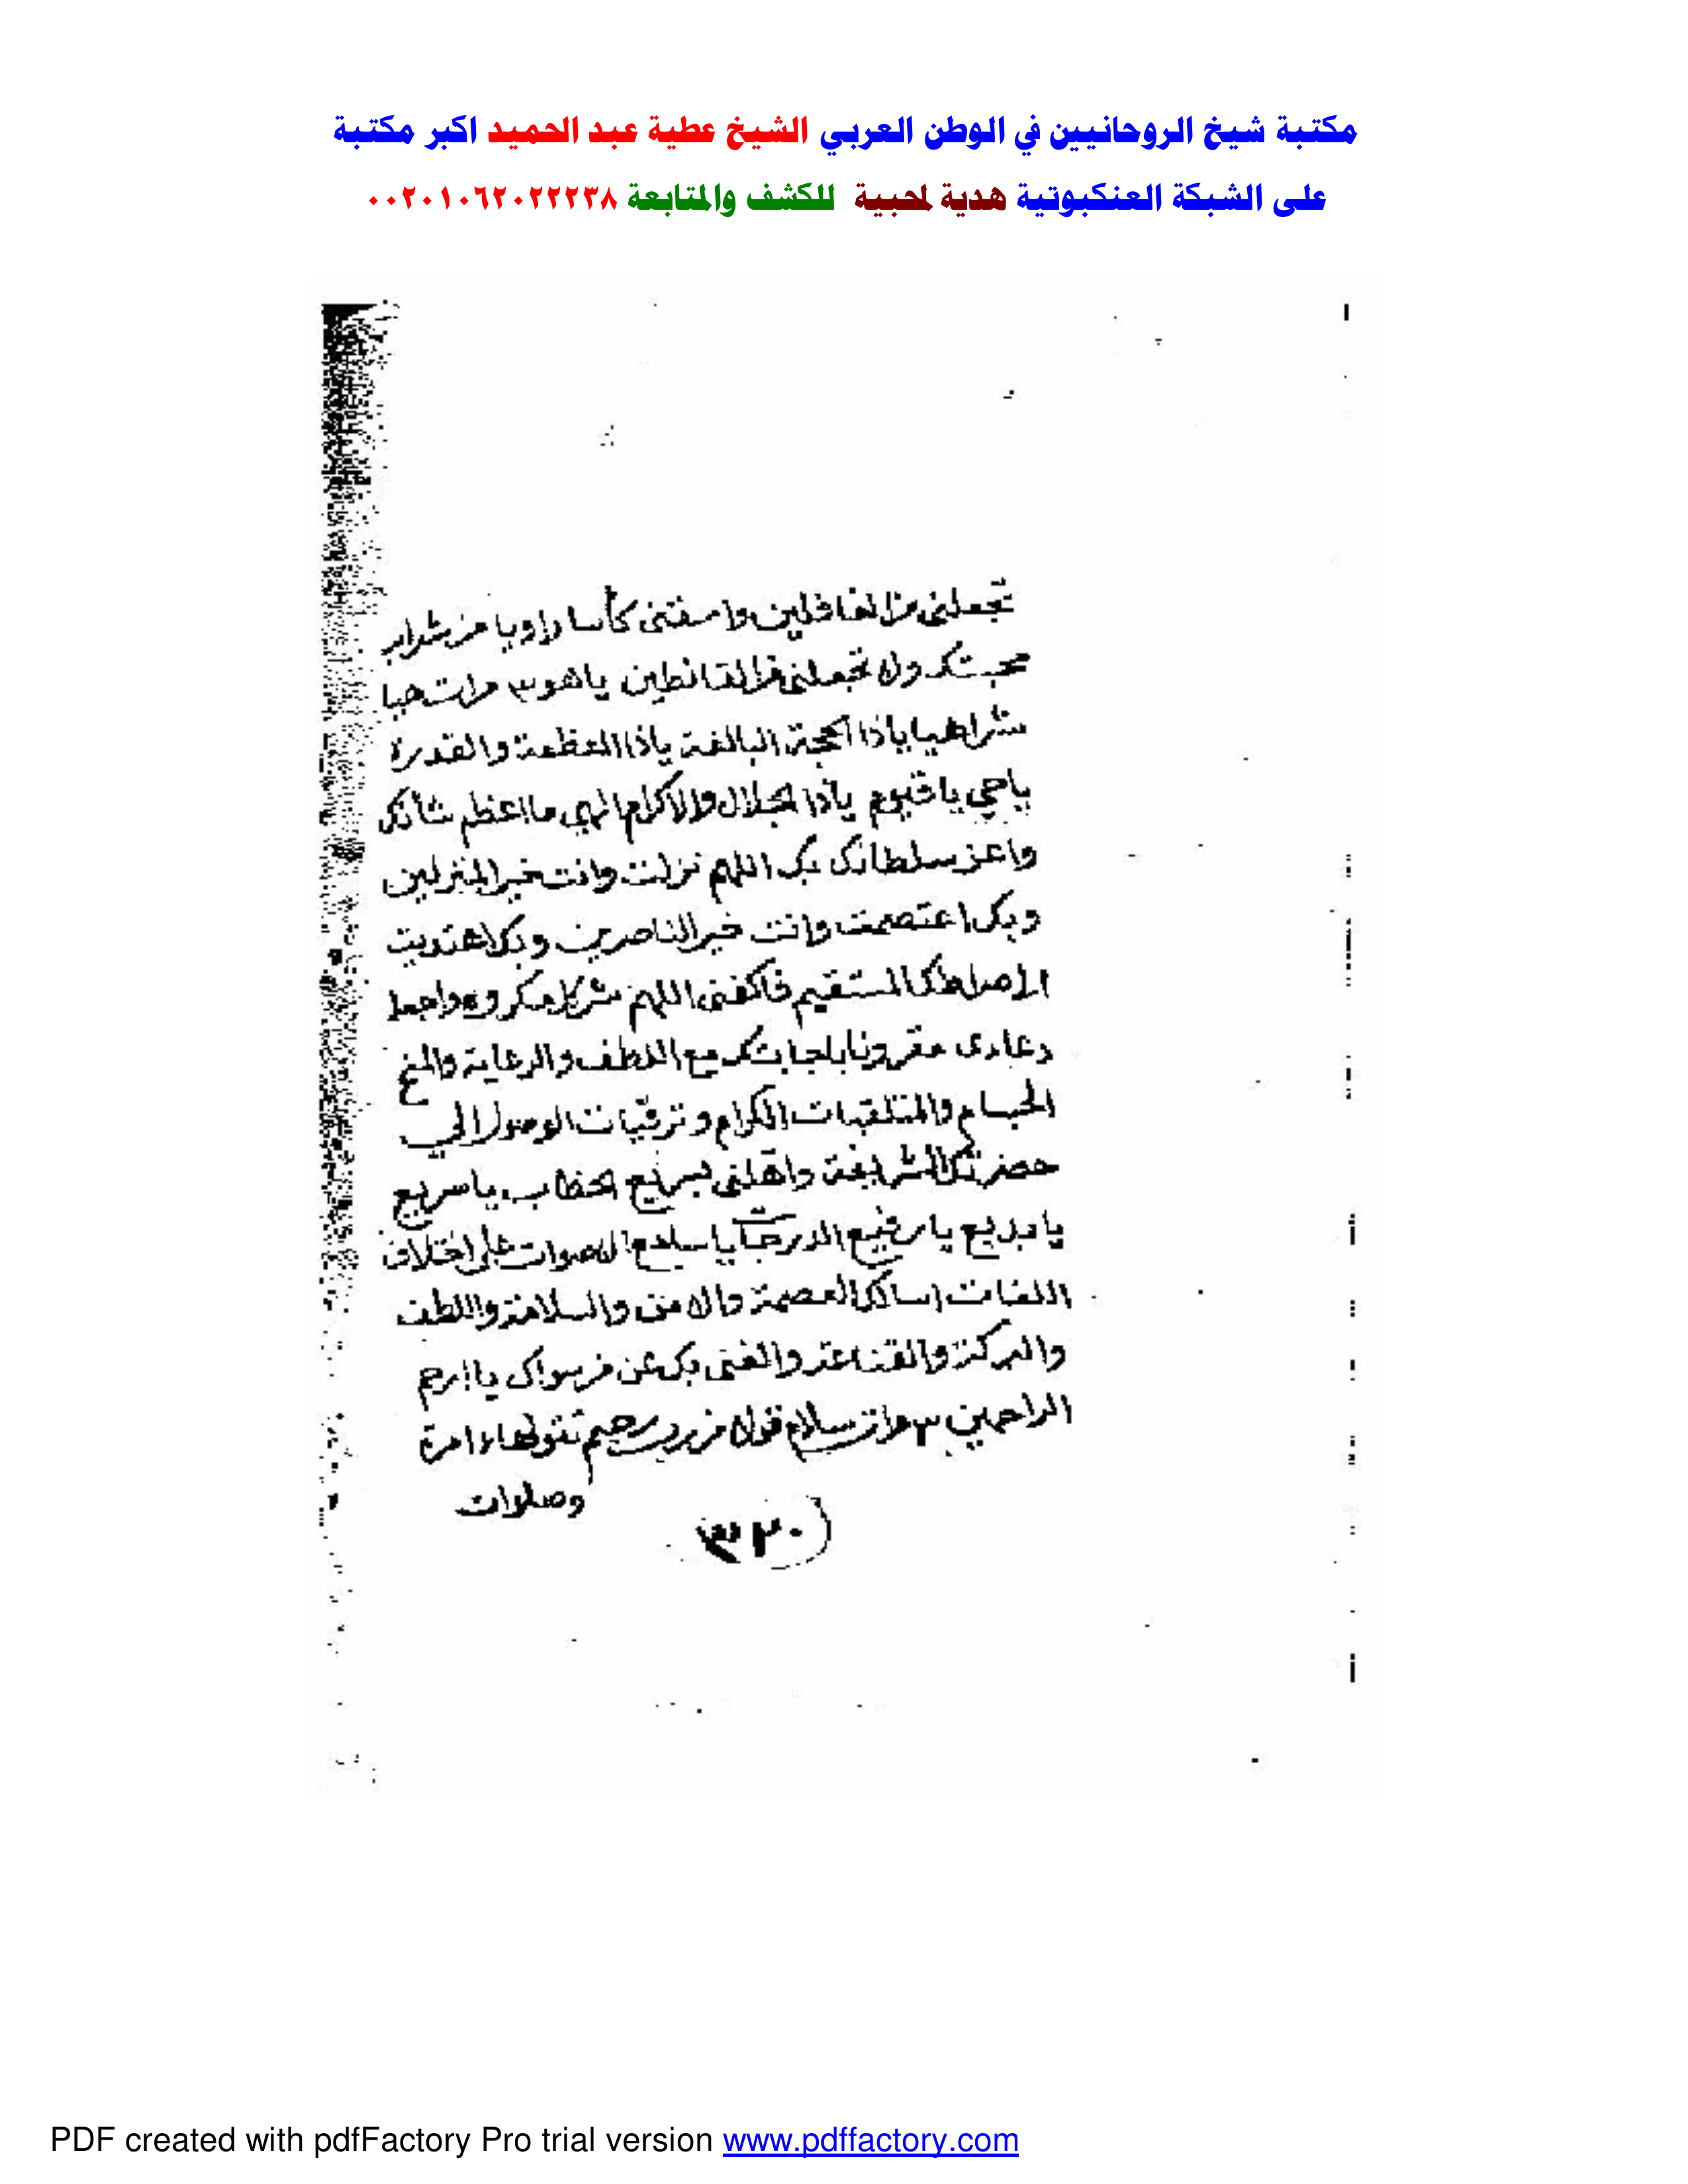 مكتبة شيخ الروحانيين في الوطن العربي الشيخ عطية عبد الحميد اكبر مكتبة
على الشبكة العنكبوتية هدية لمحبية للكشف والمتابعة ٠٠٢٠١٠٦٢٠٢٢٢٣٨
تجعلنى من الغافلين واسقنى كأسا راويا من شراب
محبتك ولا تجعلنى من القانطين ياهو ٣ مرات هيا
شراهيا ياذا الحجة البالغة ياذا العظمة والقدرة
ياحي ياقيوم ياذا الجلال والاكرام الهي ما اعظم شأنك
واعز سلطانك بك اللهم نزلت وانت خير المنزلين
وبك اعتصمت وانت خير الناصرين وبك اهتديت
الى صراطك المستقيم فاكفنى اللهم شر كل مكروه واجعل
دعاءى مقرونا باجابتك مع اللطف والرعاية والمنح
الجسام والتلقيات الكرام وترقيات الوصول الي
حضرتك الشريفة واهلنى بسريع الخطاب ياسريع
يابديع يارفيع الدرجات ياسامع الاصوات على اختلاف
اللغات اسالك العصمة والامن والسلامة واللطف
والبركة والقناعة والغنى بك عن من سواك ياارحم
الراحمين ٣ مرات سلام قولا من رب رحيم تقولها مرة
وصلوات
٣٢٠
PDF created with pdfFactory Pro trial version www.pdffactory.com